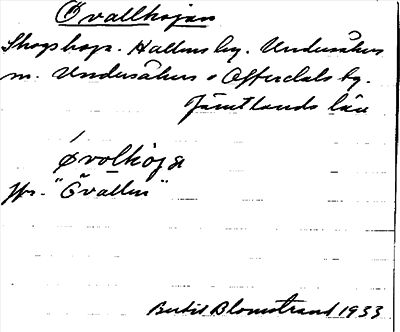 Övallhöjan
Skogshöjd. Hallens by. Undersåkers
m. Undersåkers o Offerdals by.
Jämtlands län
øvolhöja
Jfr. "Övallen"
Bertil Blomstrand 1933